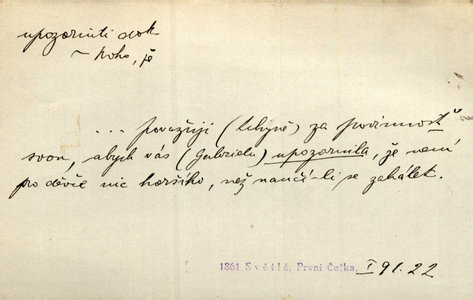 upozorniti dok
~ koho, že
... považuji (Libyně) za povinnost
svou, abych vás (Gabrielu) upozornila, že není
pro děvče nic horšího, než naučí-li se zahálet.
1861 Světlá, První Češka. I 91.22